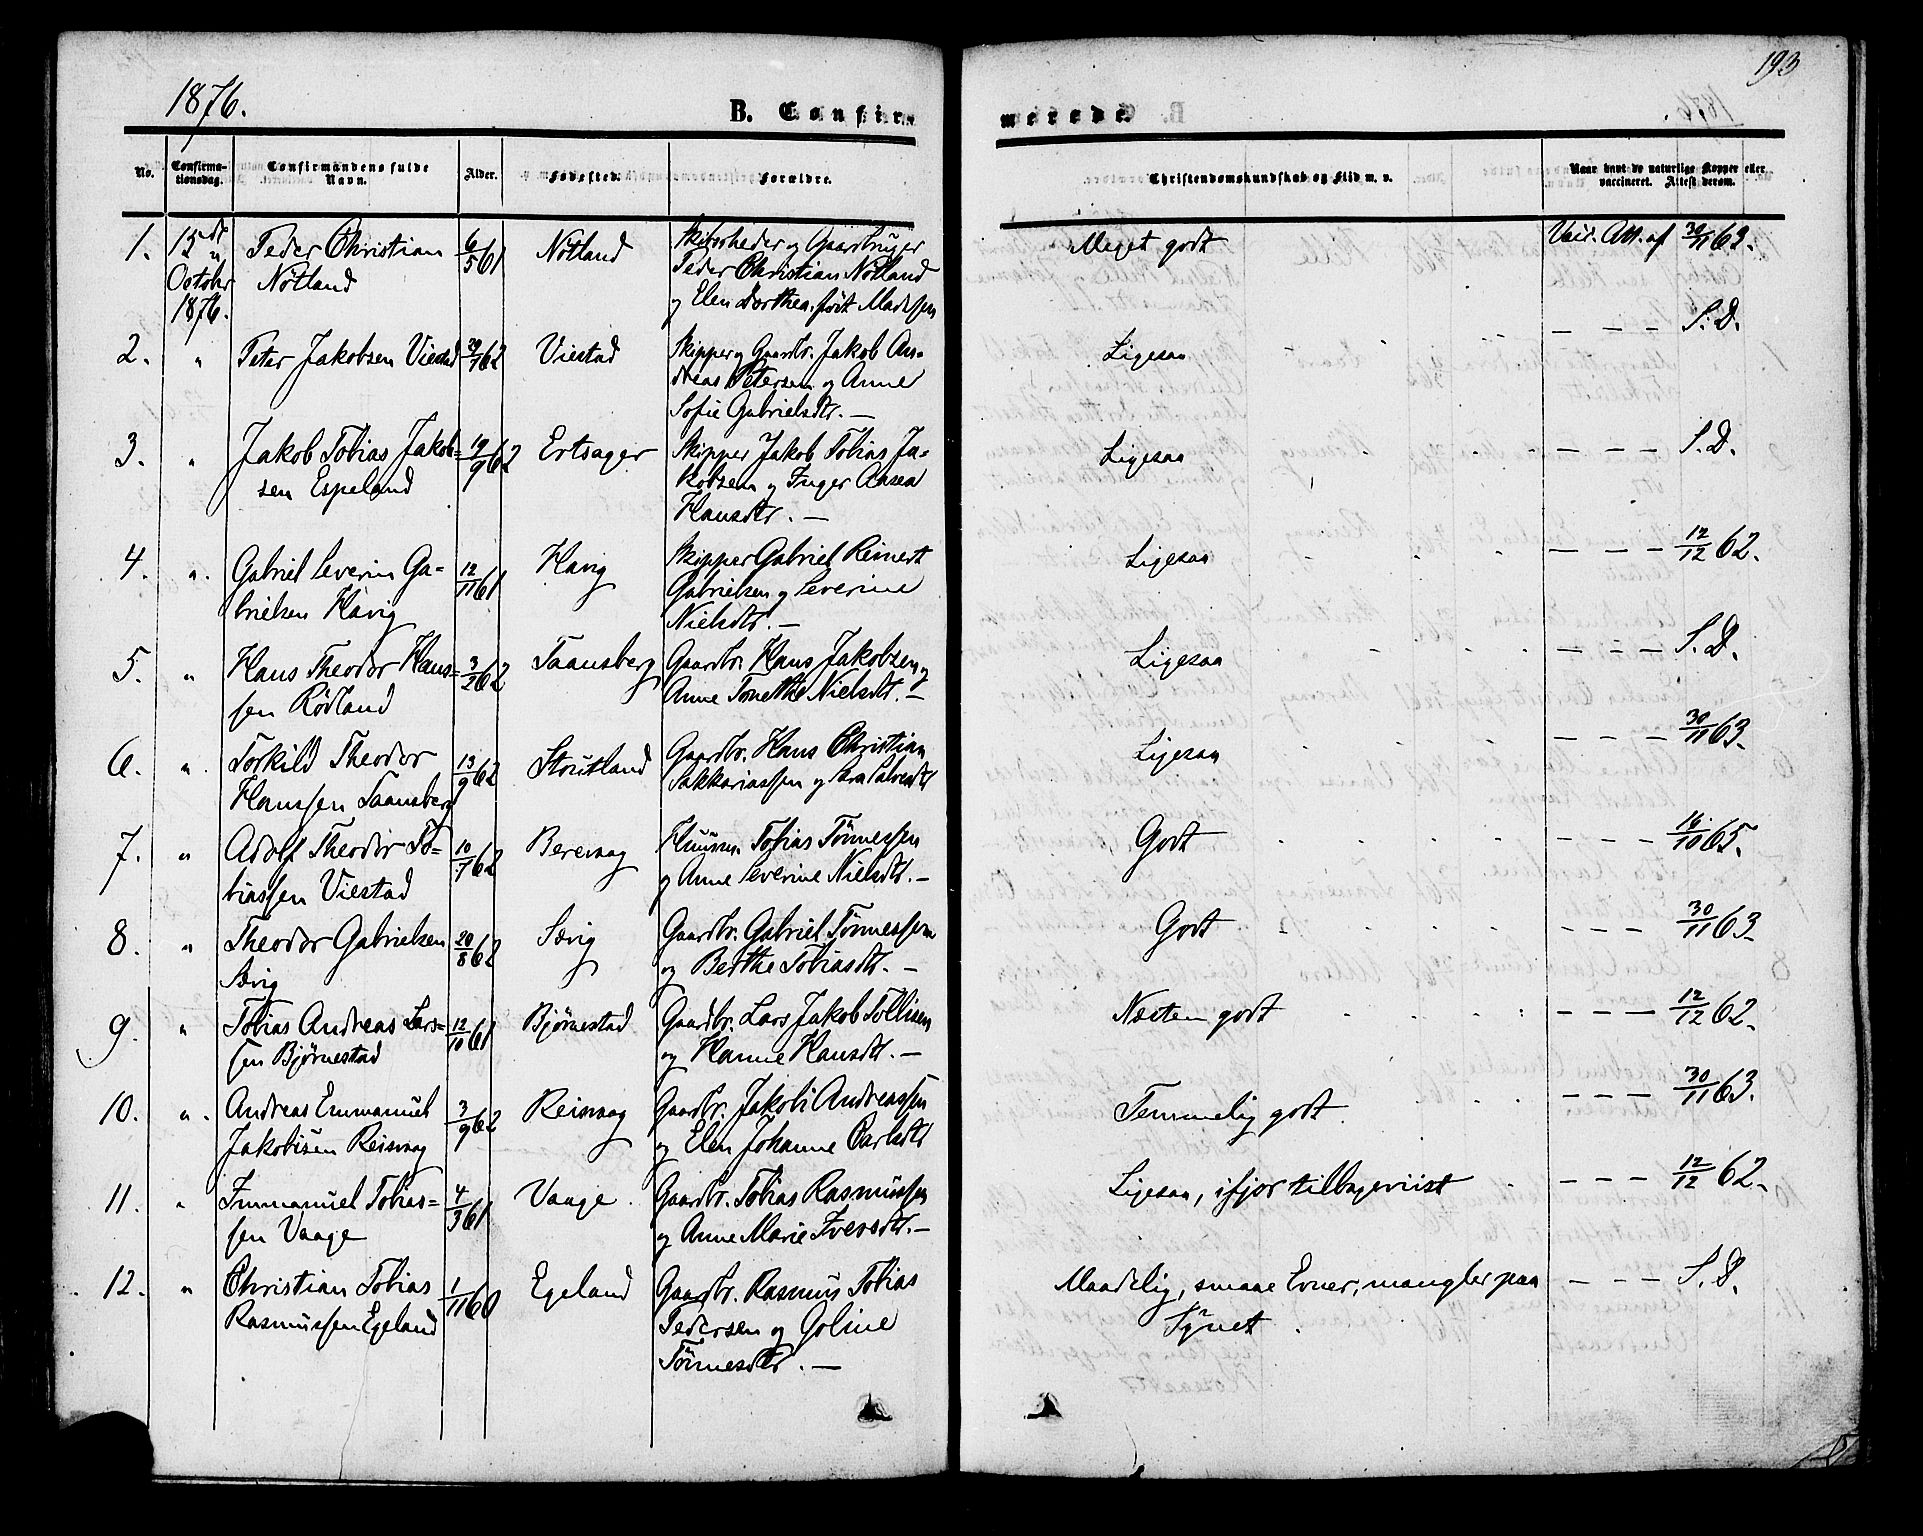 193
1876.
B. Confirmerede.
No.
Confirmationsdag.
Confirmandens fulde Navn.
Alder.
Fødested.
Forældre.
Christendomskundskab og Flid m. v.
Naar havt de naturlige Kopper eller vaccineret. Attest derom.
1. 15de Octobr 1876. Peder Christian Nötland 6/5 61 Nötland
og Gaardbruger
Peder Christian Nötland
og Elen Dorthea, født Madssen
Meget godt
Vacc. Att. af 30/11 62.
2. " Peter Jakobsen Viestad 62 Viestad
Skipper og Gaardbr. Jakob An-
dreas Petersen og Anne
Sofie Gabrielsdtr. —
Ligesaa
— — — S. D.
3. " Jakob Tobias Jakob-
sen Espeland 19/9 62 Ertsager
Skipper Jakob Tobias Ja-
kobsen og Inger Aasea
Hansdtr. —
Ligesaa
— — — S. D.
4. " Gabriel Severin Ga-
brielsen Håvig 12/11 61 Havig
Skipper Gabriel Reinert
Gabrielsen og Severine
Nielsdtr. —
Ligesaa
— — — 12/12 62.
5. " Hans Theodor Hans-
sen Rödland 3/2 62 Taansberg
Gaardbr. Hans Jakobsen og
Anne Tonette Nielsdtr. —
Ligesaa
— — — S. D.
6. " Torkild Theodor
Hanssen Taansberg 13/9 62 Stoutland
Gaardbr. Hans Christian
Sakkariassen og Sara
Ligesaa
— — — 30/11 63.
7. " Adolf Theodor To-
biassen Viestad 10/7 62 Berevaag
Huusm. Tobias Tönnessen
og Anne Severine Nielsdtr. —
Godt
— — — 16/10 65.
8. " Theodor Gabrielsen
Sævig 20/8 62 Sævig
Gaardbr. Gabriel Tönnessen
og Berthe Tobiasdtr. —
Godt
— — — 30/11 63.
9. " Tobias Andreas Lars-
sen Bjørnestad 12/10 61 Bjørnestad
Gaardbr. Lars Jakob Tollisen
og Hanne Hansdtr. —
Næsten godt
— — — 12/12 62.
10. " Andreas Emmanuel
Jakobisen Reisvaag 3/9 62 Reisvaag
Gaardbr. Jakobi Andreassen
og Elen Johanne Carlsdtr
Temmelig godt
— — — 30/11 63.
11. " Immanuel Tobias-
sen Vaage 4/3 61 Vaage
Gaardbr. Tobias Rasmussen
og Anne Marie Iversdtr. —
Ligesaa, ifjor tilbageviist
— — — 12/12 62.
12. " Christian Tobias
Rasmussen Egeland 1/11 60 Egeland
Gaardbr. Rasmus Tobias
Pedersen og Goline
Tönnesdtr. —
Maadelig, smaae Evner, mangler paa
Synet
— — — S. D.